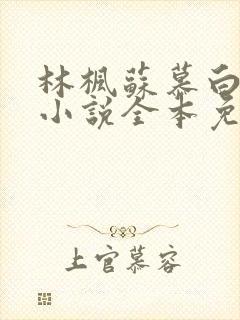 林楓蘇慕白
小說全本免
上官慕容